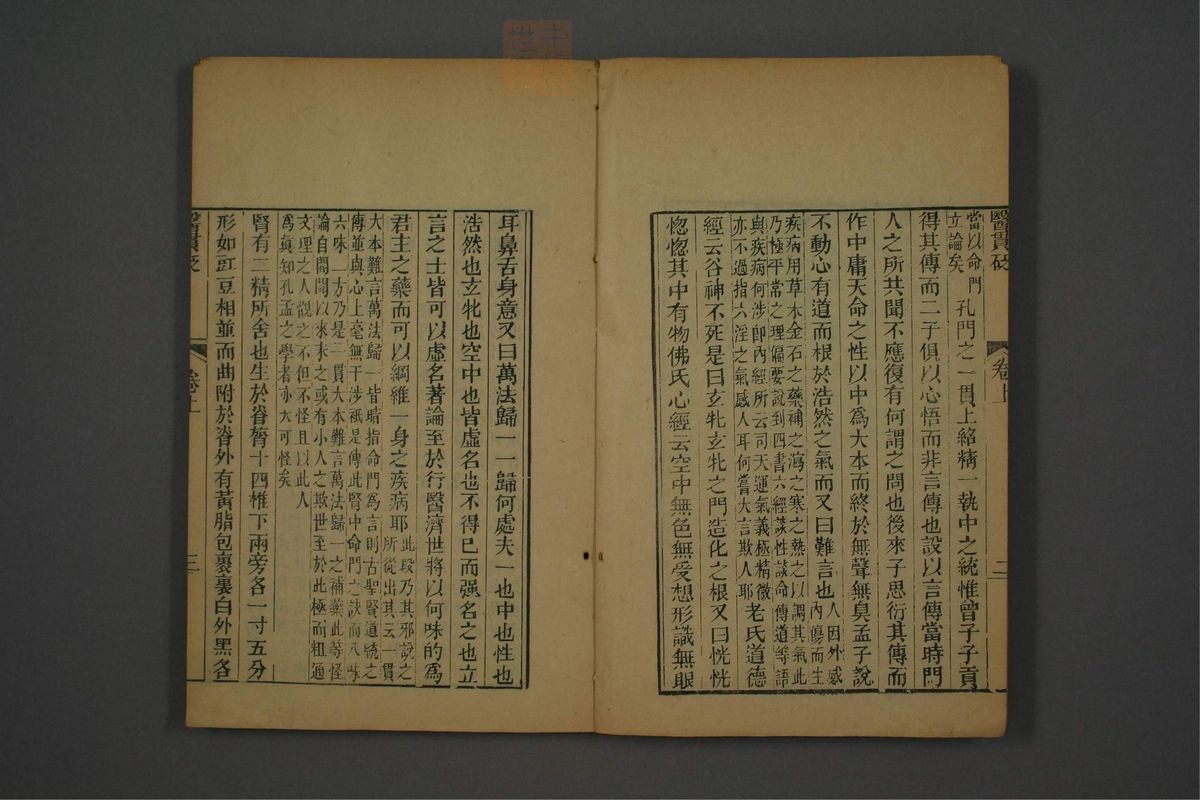 醫貫砭
卷上
二
當以命門
立論矣
孔門之一貫上紹精一執中之統惟曾子子貢
得其傳而二子俱以心悟而非言傳也設以言傳當時門
人之所共聞不應復有何謂之問也後來子思衍其傳而
作中庸天命之性以中為大本而終於無聲無臭孟子說
不動心有道而根於浩然之氣而又曰難言也
人因外感
內傷而生
疾病用草木金石之藥補之瀉之寒之熱之以調其氣此
乃極平常之理偏要說到四書六經談性談命傳道等語
與疾病何涉即內經所云司天運氣義極精微
亦不過指六淫之氣感人耳何嘗大言欺人耶
老氏道德
經云谷神不死是曰玄牝玄牝之門造化之根又曰恍恍
惚惚其中有物佛氏心經云空中無色無受想形識無眼
耳鼻舌身意又曰萬法歸一一歸何處夫一也中也性也
浩然也玄牝也空中也皆虛名也不得已而强名之也立
言之士皆可以虛名著論至於行醫濟世將以何味的為
君主之藥而可以綱維一身之疾病耶
此段乃其邪說之
所從出其云一貫
大本難言萬法歸一皆暗指命門為言則古聖賢道統之
傳並與心上毫無干涉祇是傳此腎中命門之訣而八味
六味一方乃是一貫大本難言萬法歸一之補藥此等怪
論自開闢以來未之或有小人之欺世至於此極而粗通
文理之人觀之不但不怪且以此人
為真知孔孟之學者亦大可怪矣
腎有二精所舍也生於脊膂十四椎下兩旁各一寸五分
形如豇豆相並而曲附於脊外有黃脂包裹裏白外黑各
醫貫砭
卷上
三